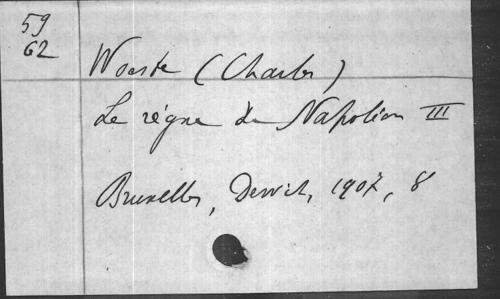 59
62
Woeste (Charles)
Le règne de Napoléon III
Bruxelles, Dewit, 1907, 8